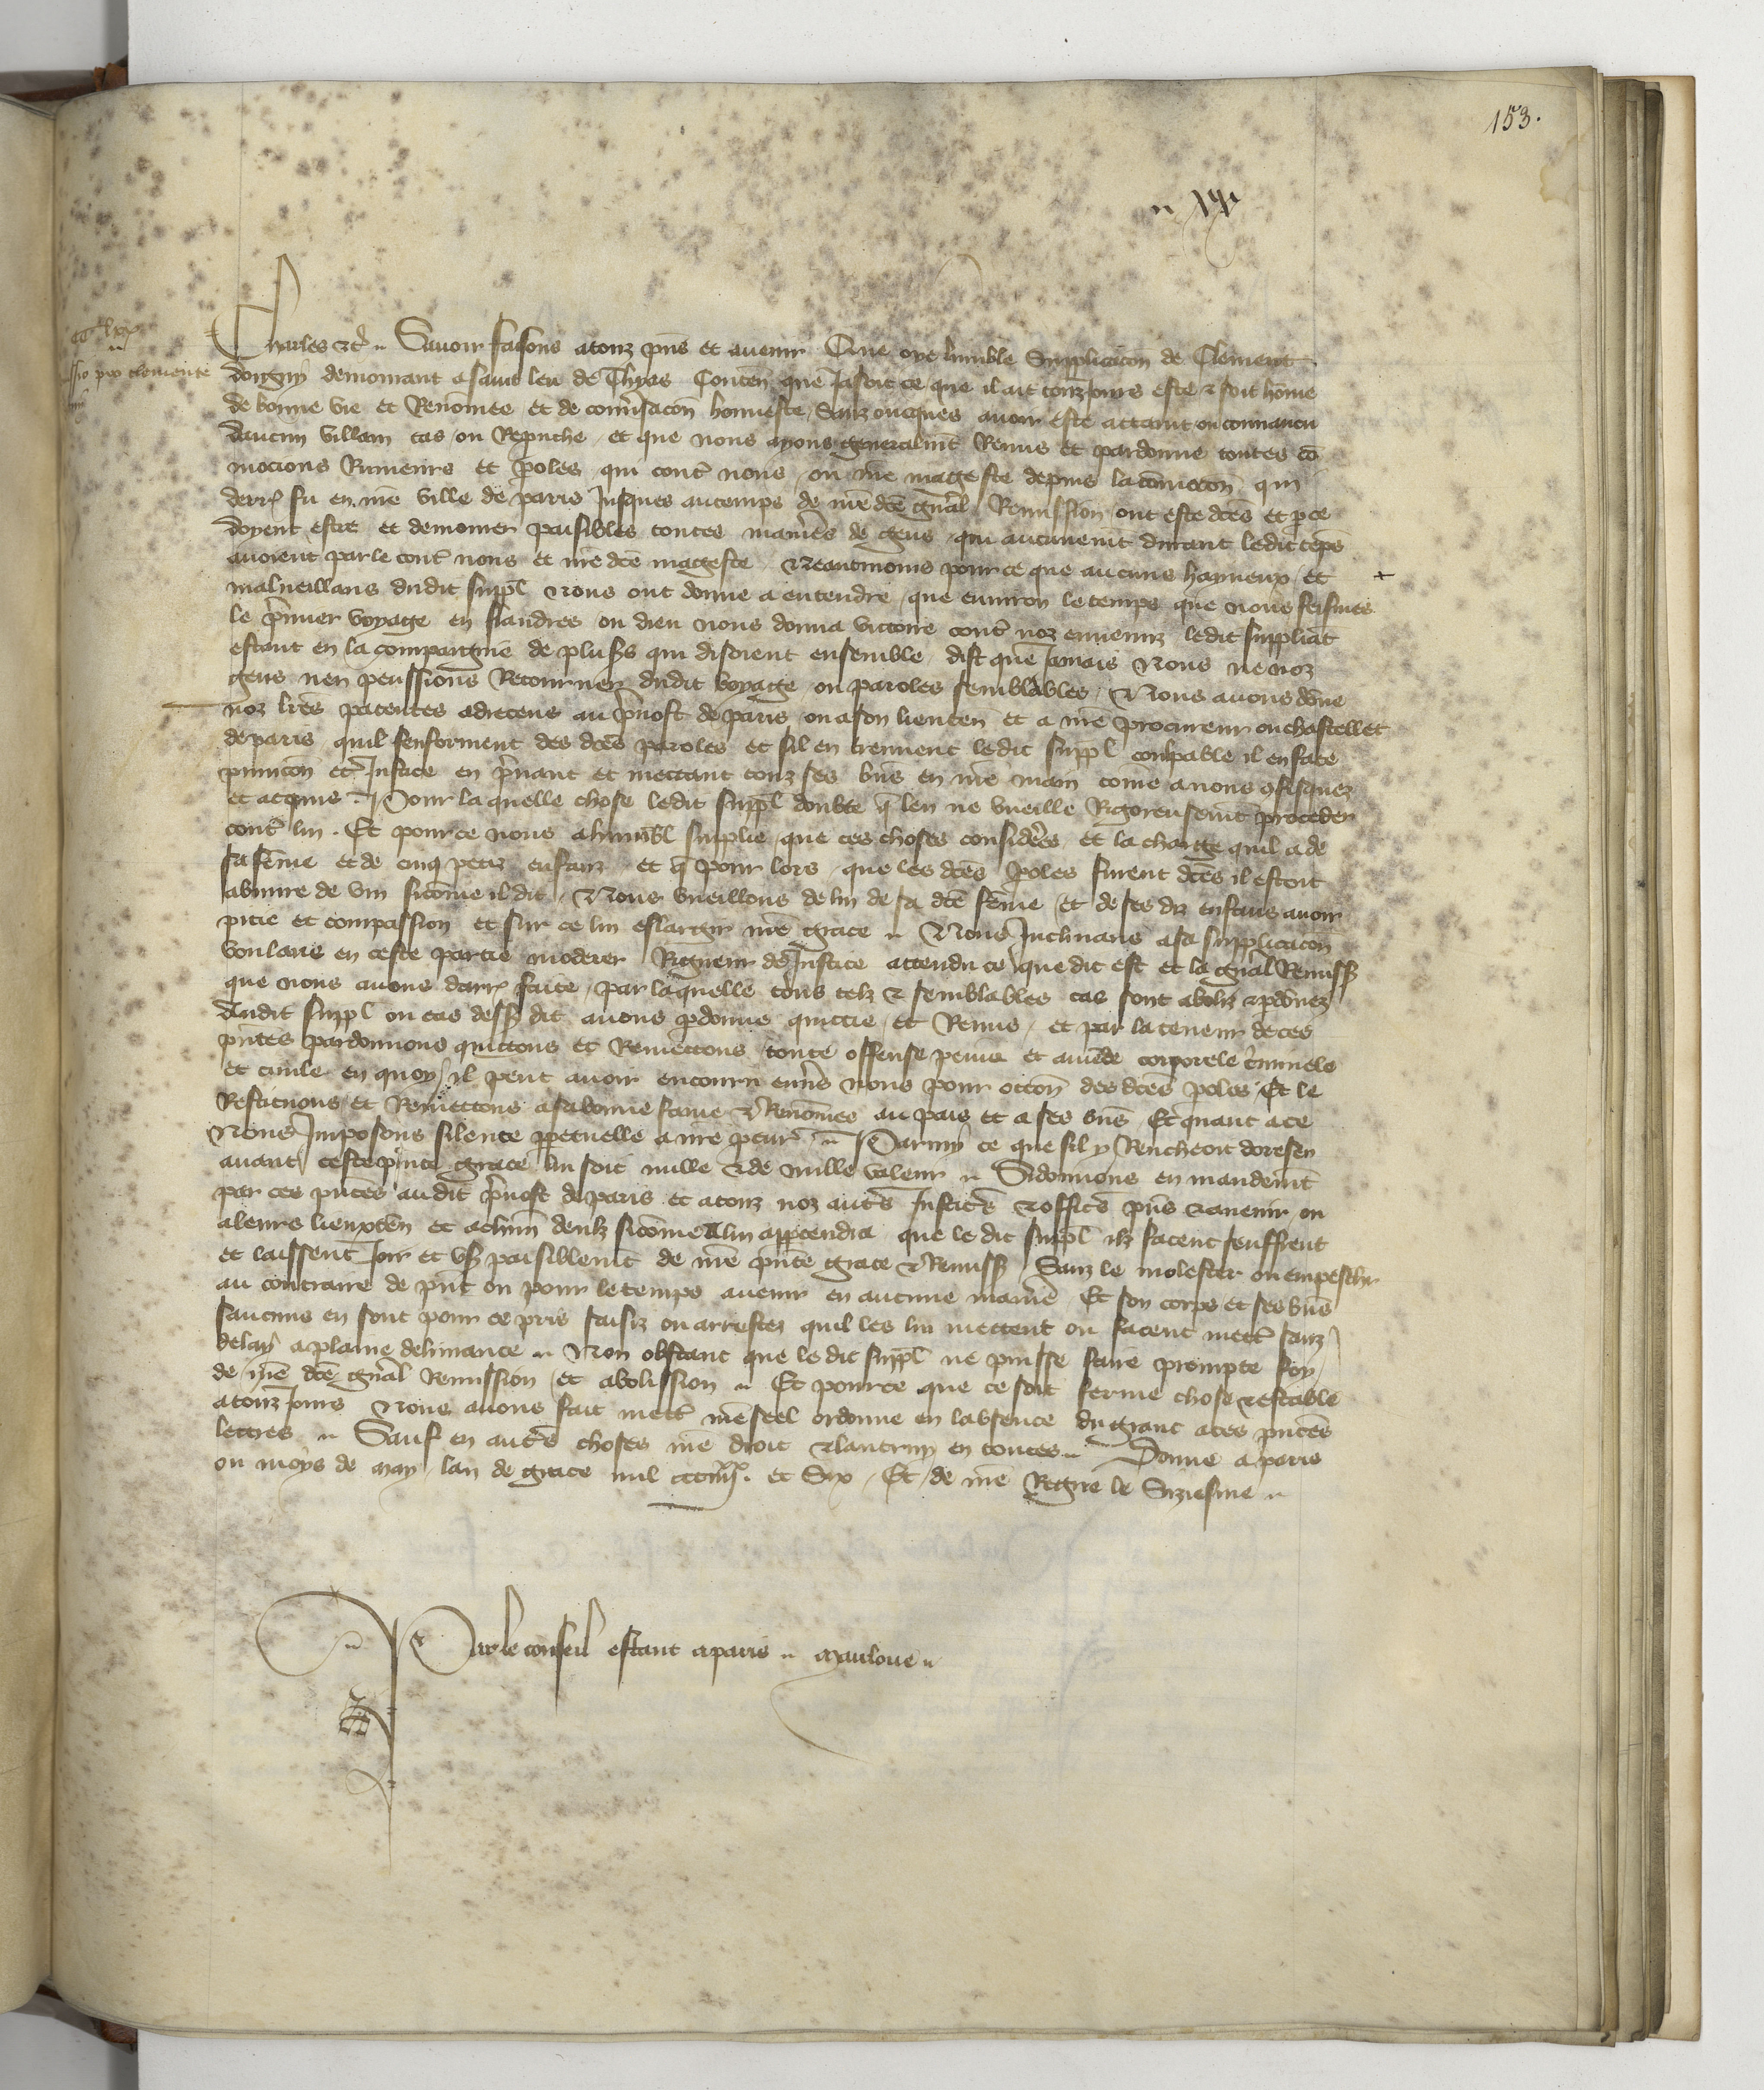 153.
Charles etc̃ Savoir faisons a touz p̃ns et avenir Que oye lumble Supplicacõn de Clement
doigny demourant a saint leu de Thyas Conteñ que Jasoit ce que il ait touzjours este & soit hõme
de bonne vie et Renõmee et de conv̾sacõn honneste, Sanz oncques avoir este attaint ou convaincu
daucun villain cas ou Rep̃uche, et que nous ayons gen̾alm̃t Remis et pardonne toutes cõ
mocions Rumeurs et p̃oles qui cont̾ nous ou n̄re mageste depuis la cõmocõn qui
derr̃ fu en n̄re ville de paris Jusques au temps de n̄re dc̃e gñal Remission ont este dc̃es et p̃ ce
doyent estre et demourer paisibles toutes manie̾s de gens qui aucunem̃t durant ledit tẽps
avoient parle cont̾ nous et n̄re dc̃e mageste Neantmoins pour ce que aucuns hayneux et
malveillans dudit suppl̃ Nous ont donne a entendre que environ le temps que nous feismes
le p̃mier voyage en flandres ou dieu nous donna victoire cont̾ noz ennemiz ledit suppliãt
estant en la compaignie de plus̾s qui disoient ensemble dist que Jamais Nous ne noz
gens nen peussions Retourner dudit voyage ou paroles semblables Nous avons dõne
noz lr̃es patentes adrecens au p̃vost de paris ou a son lieuten̾ et a n̄re procureur ou chastellet
de paris quil senforment des dc̃es paroles et sil en treuvent ledit suppl̃ coulpable il en face
punicõn et Justice en p̃nant et mettant touz ses biẽs en n̄re main cõme a nous ꝯfisquez
et acquis Pour la quelle chose ledit suppl̃ doubte q̃ len ne vueille Rigoreusem̃t proceder
cont̾ lui. Et pour ce nous a humbl̃ supplie que ces choses conside̾es et la charge quil a de
sa fẽme et de cinq petiz enfanz et q̃ pour lors que les dc̃es p̃oles furent dc̃es il estoit
abuvre de vin sicõme il dit, Nous vueillons de lui de sa dc̃e fẽme et de ses diz enfans avoir
pitie et compassion et sur ce lui eslargir n̄re grace Nous Inclinans a sa supplicacõn
voulans en ceste partie moderer Rigueur de Justice attendu ce que dit est et la gñal Remiss̾
que nous avons darr̃ faite, par laquelle tous telz & semblables cas sont aboliz & p̃dõnez
Audit suppl̃ ou cas dess̾ dit avons p̃donne quittie et Remis, et par la teneur de ces
p̃ntes pardonnons quittons et Remettons toute offense peine et amẽde corporele c̾minele
et civile en quoy il peut avoir encouru env̾s nous pour occõn des dc̃es p̃oles Et le
Restituons et Remettons a sa bonne fame & Renõmee au pais et a ses biẽs Et quant a ce
Nous Imposons silence p̃petuelle a n̄re p̃cur̾ Parmy ce que sil y Rencheoit doresen
avant ceste p̃nte grace lui soit nulle & de nulle valeur Sidonnons en mandem̃t
par ces p̃ntes au dit p̃vost de paris et a touz noz aut̾s Justic̾s & offic̾s p̃ns & avenir ou
a leurs lieuxteñ et a chũn deulz sicõme a lui app̃tendra que le dit suppl̃ ilz facent seuffrent
et laissent Joir et us̾ paisiblem̃t de n̄re p̃nte grace & Remiss̾ Sanz le molester ou empeschr̾
au contraire de p̃nt ou pour le temps avenir en aucune manie̾ Et son corps et ses biẽs
saucuns en sont pour ce pris saisiz ou arrestez quil les lui mettent ou facent mett̾ sanz
delay a plaine delivrance Non obstant que le dit suppl̃ ne puisse faire prompte foy
de n̄re dc̃e gñal Remission et abolission Et pource que ce soit ferme chose & estable
a touzjours Nous avons fait mett̾ n̄re seel ordonne en labsence du grant a ces p̃ntes
lettres Sauf en aut̾s choses n̄re droit & lautruy en toutes Donne a paris
ou moys de may lan de grace mil ccc iiii^xx et Six Et de n̄re Regne le Siziesme
Par le conseil estant a paris Mauloue